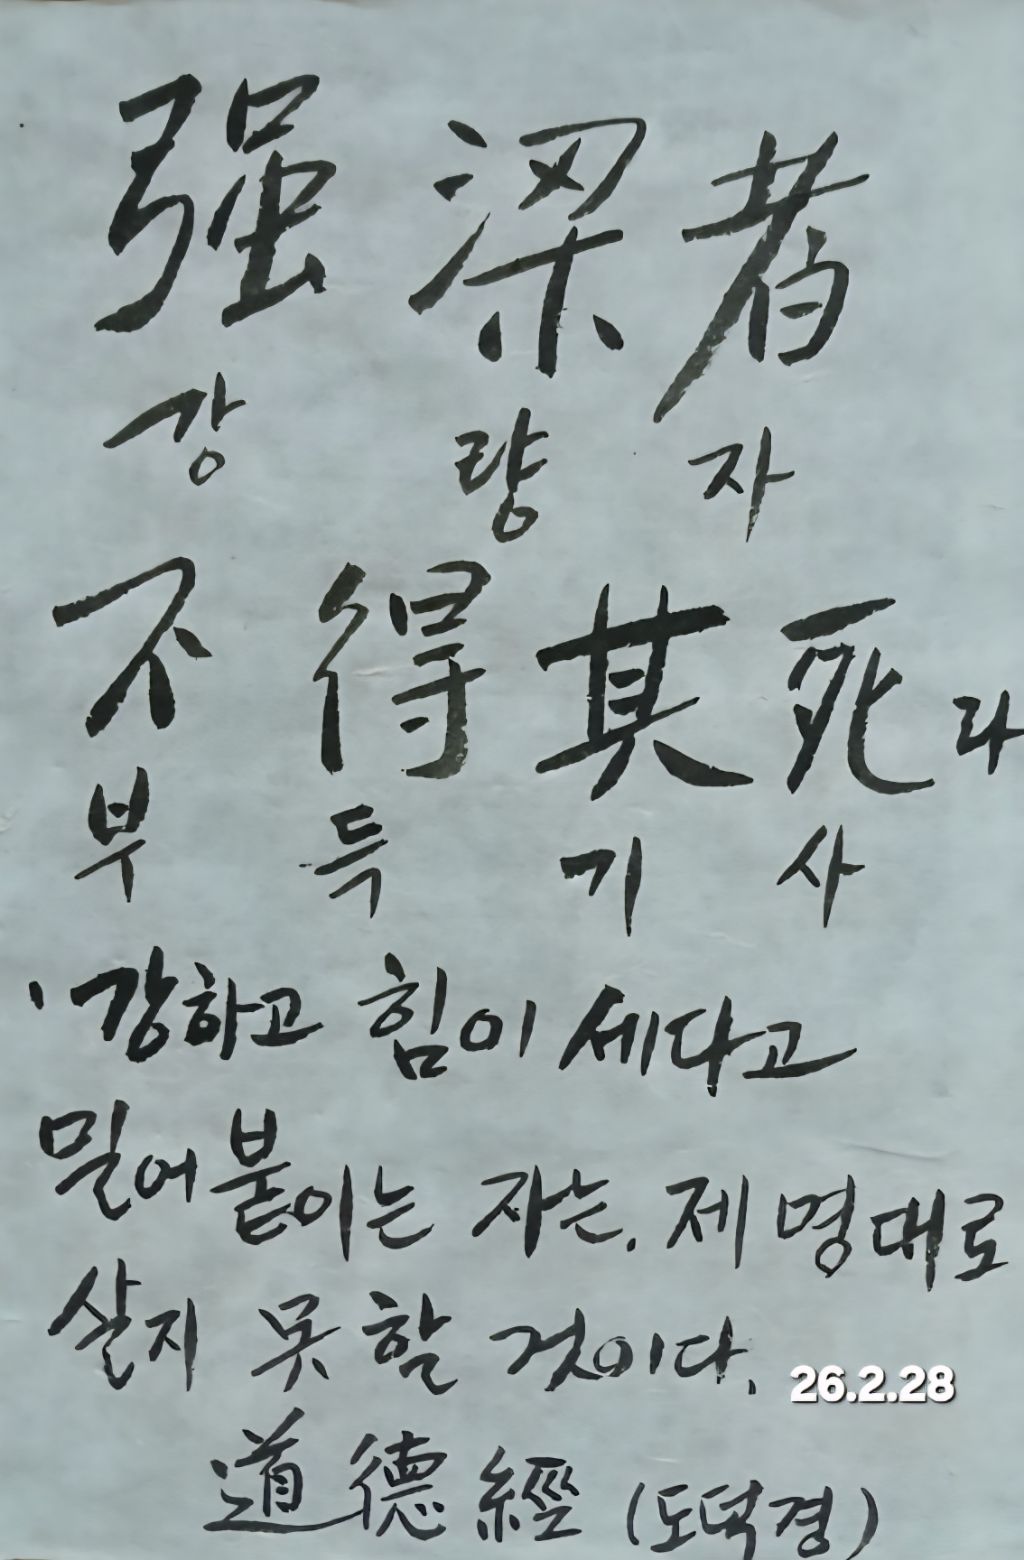 强梁者
강 량 자
不得其死라
부 득 기 사
'강하고 힘이 세다고
밀어붙이는 자는, 제 명대로
살지 못할 것이다.
26.2.28
道德經 (도덕경)